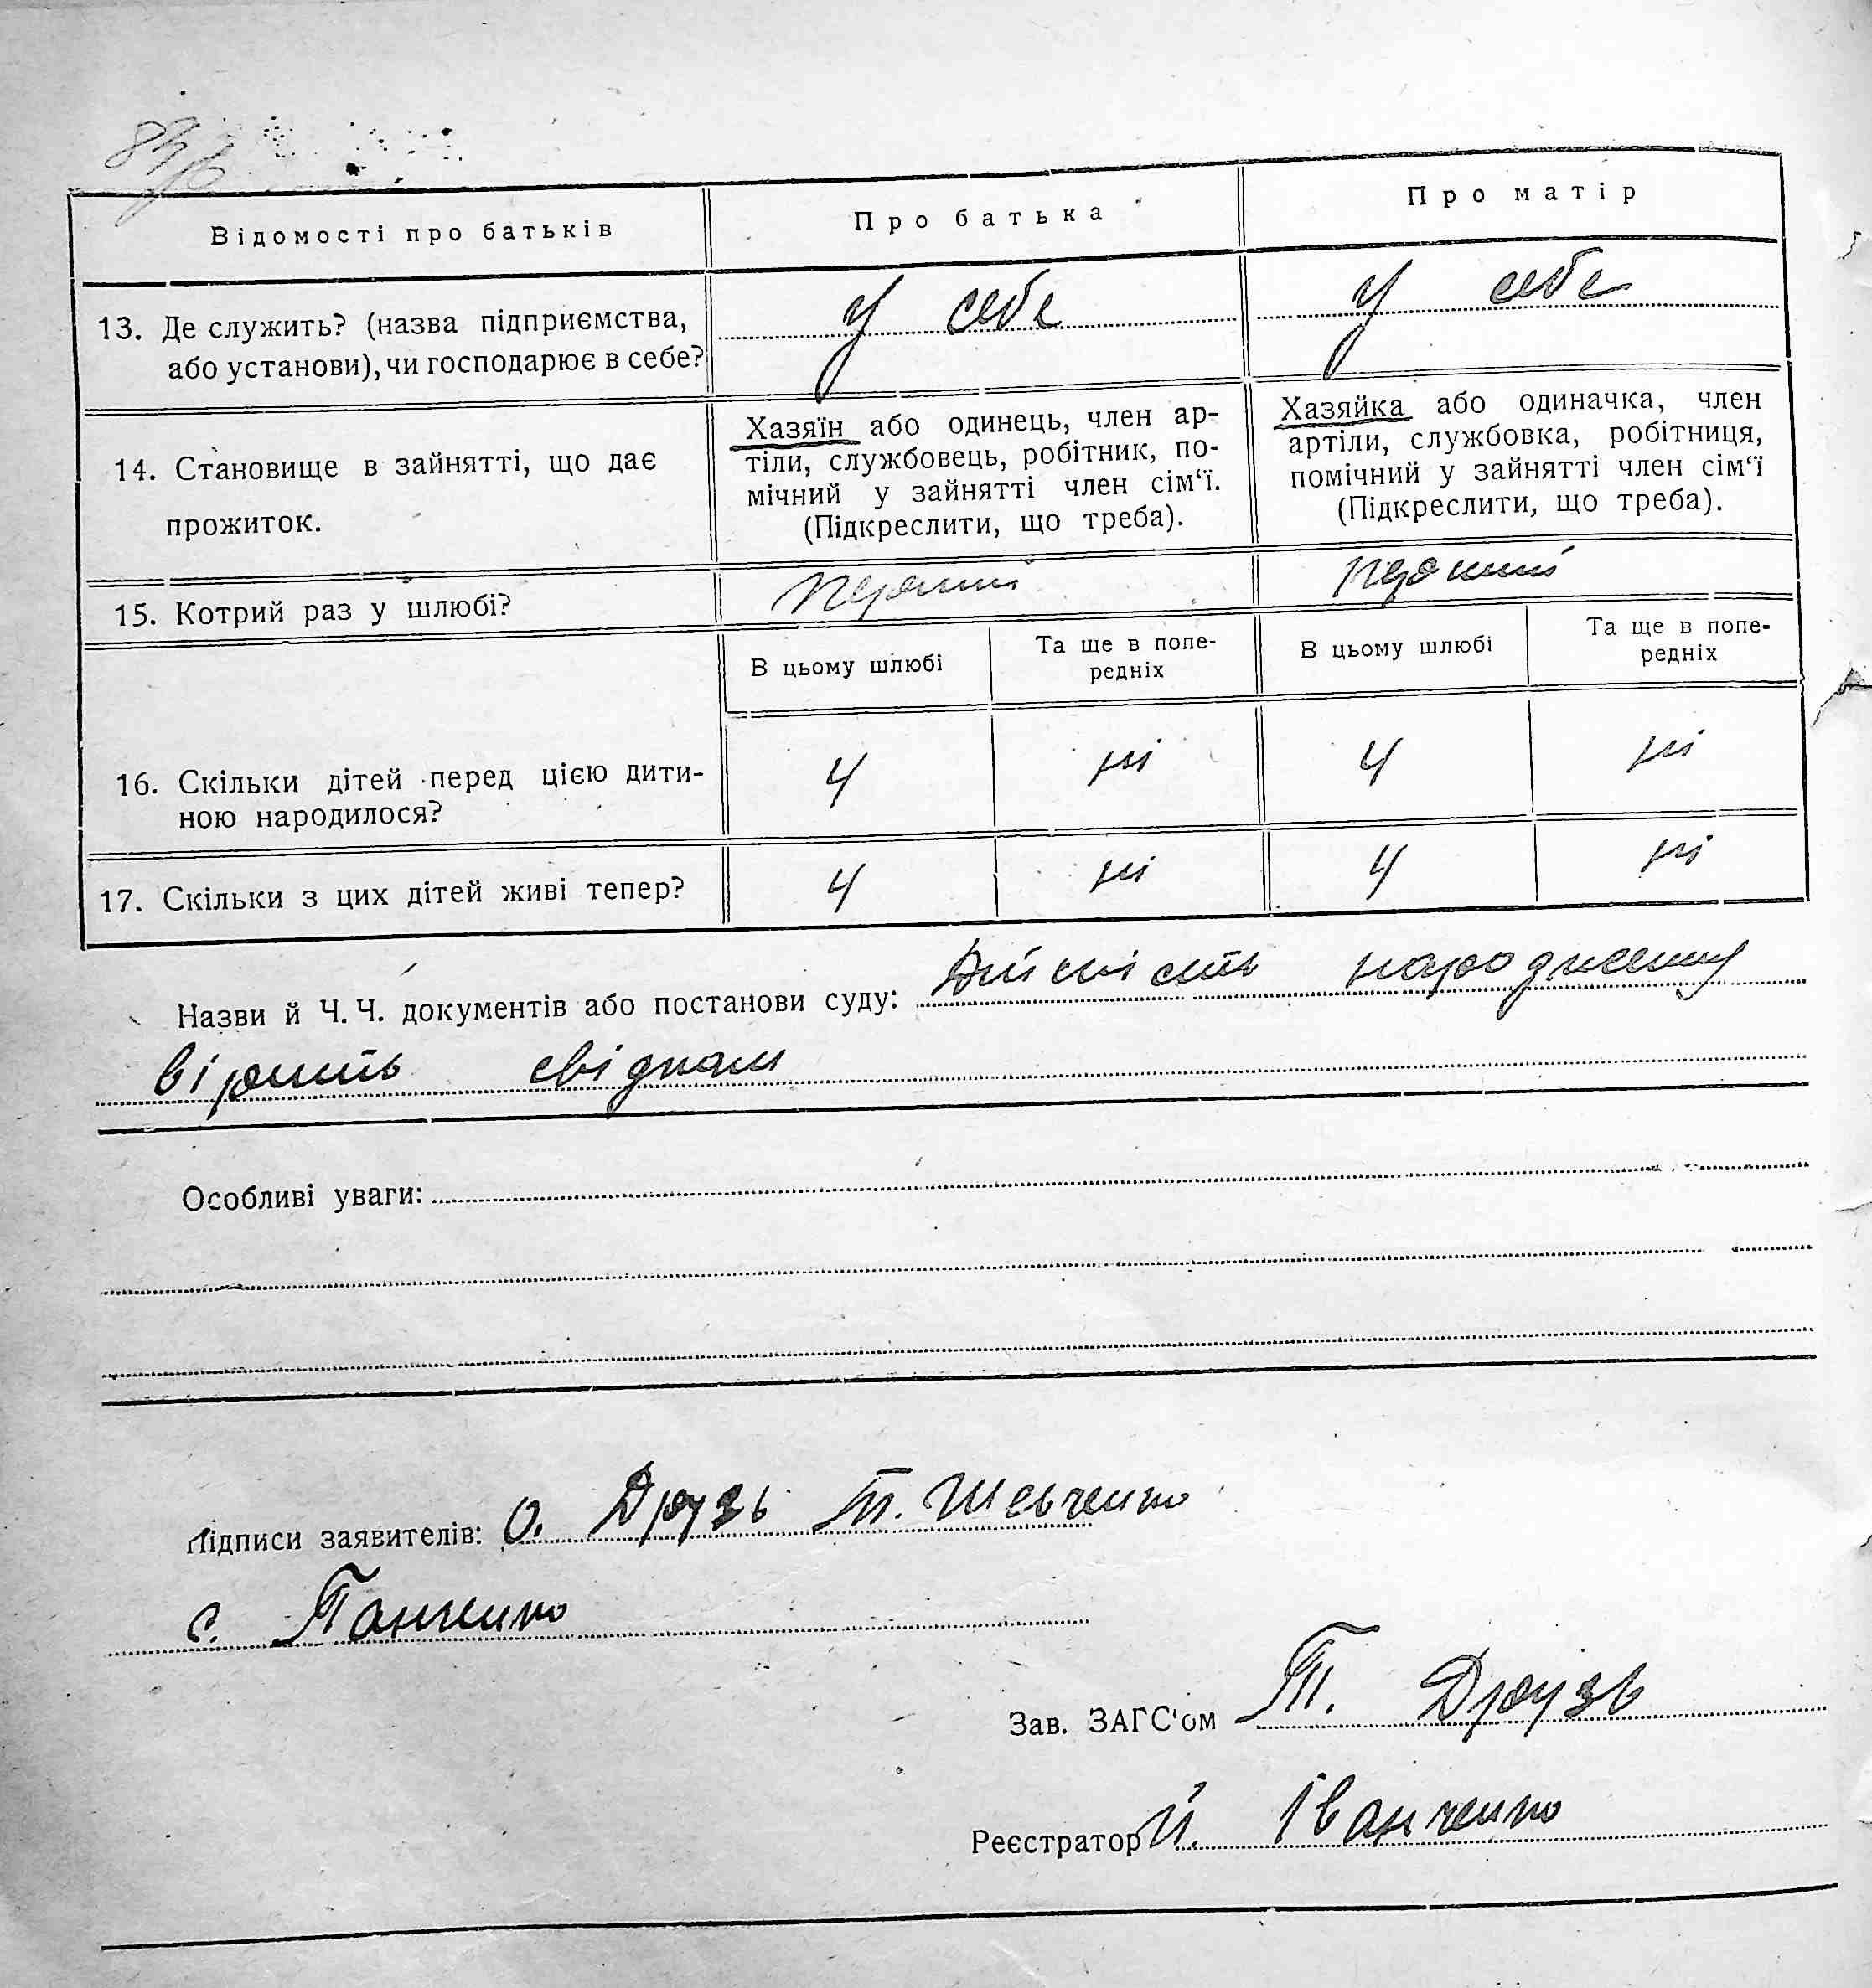 Відомості про батьків
Про батька
Про матір
13. Де служить? (назва підприємства,
або установи), чи господарює в себе?
у себе
у себе
14. Становище в зайнятті, що дає
прожиток.
Хазяїн або одинець, член ар-
тіли, службовець, робітник, по-
мічний у зайнятті член сім‘ї.
(Підкреслити, що треба).
Хазяйка або одиначка, член
артіли, службовка, робітниця,
помічний у зайнятті член сім‘ї
(Підкреслити, що треба).
15. Котрий раз у шлюбі?
перший
перший
В цьому шлюбі
Та ще в попе-
редніх
В цьому шлюбі
Та ще в попе-
редніх
16. Скільки дітей перед цією дити-
ною народилося?
4
ні
4
ні
17. Скільки з цих дітей живі тепер?
4
ні
4
ні
Назви й Ч.Ч. документів або постанови суду: Дійсність народження
свідкам
Особливі уваги:
Підписи заявителів: О. Друзь Т. Шевченко
с. Панченко
Зав. ЗАГС‘ом Т. Друзь
Реєстратор Й. Іванченко